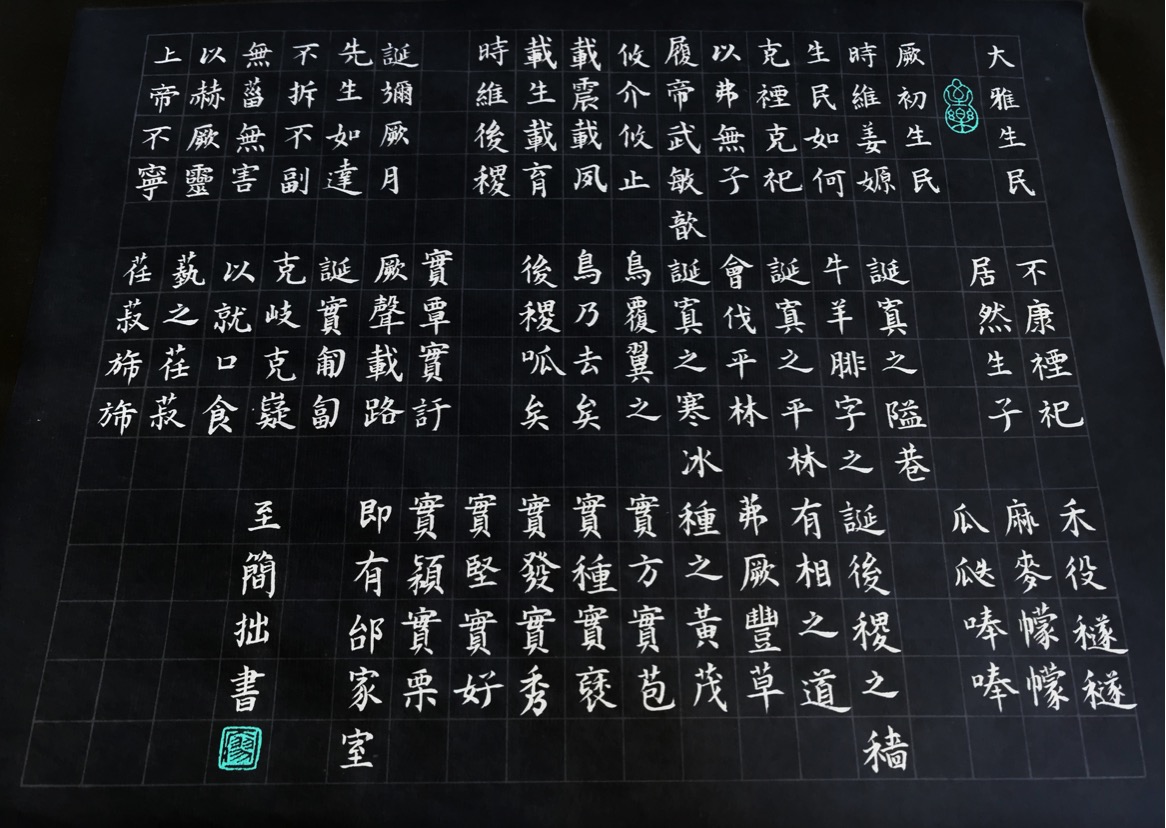 大雅生民
厥初生民
時維姜嫄
生民如何
克禋克祀
以弗無子
履帝武敏歆
攸介攸止
載震載夙
載生載育
時維後稷
誕彌厥月
先生如達
不拆不副
無菑無害
以赫厥靈
上帝不寧
不康禋祀
居然生子
誕寘之隘巷
牛羊腓字之
誕寘之平林
會伐平林
誕寘之寒冰
鳥覆翼之
鳥乃去矣
後稷呱矣
實覃實訏
厥聲載路
誕實匍匐
克岐克嶷
以就口食
蓺之荏菽
荏菽旆旆
禾役穟穟
麻麥幪幪
瓜瓞唪唪
誕後稷之穡
有相之道
茀厥豐草
種之黃茂
實方實苞
實種實褎
實發實秀
實堅實好
實穎實栗
即有邰家室
至簡拙書